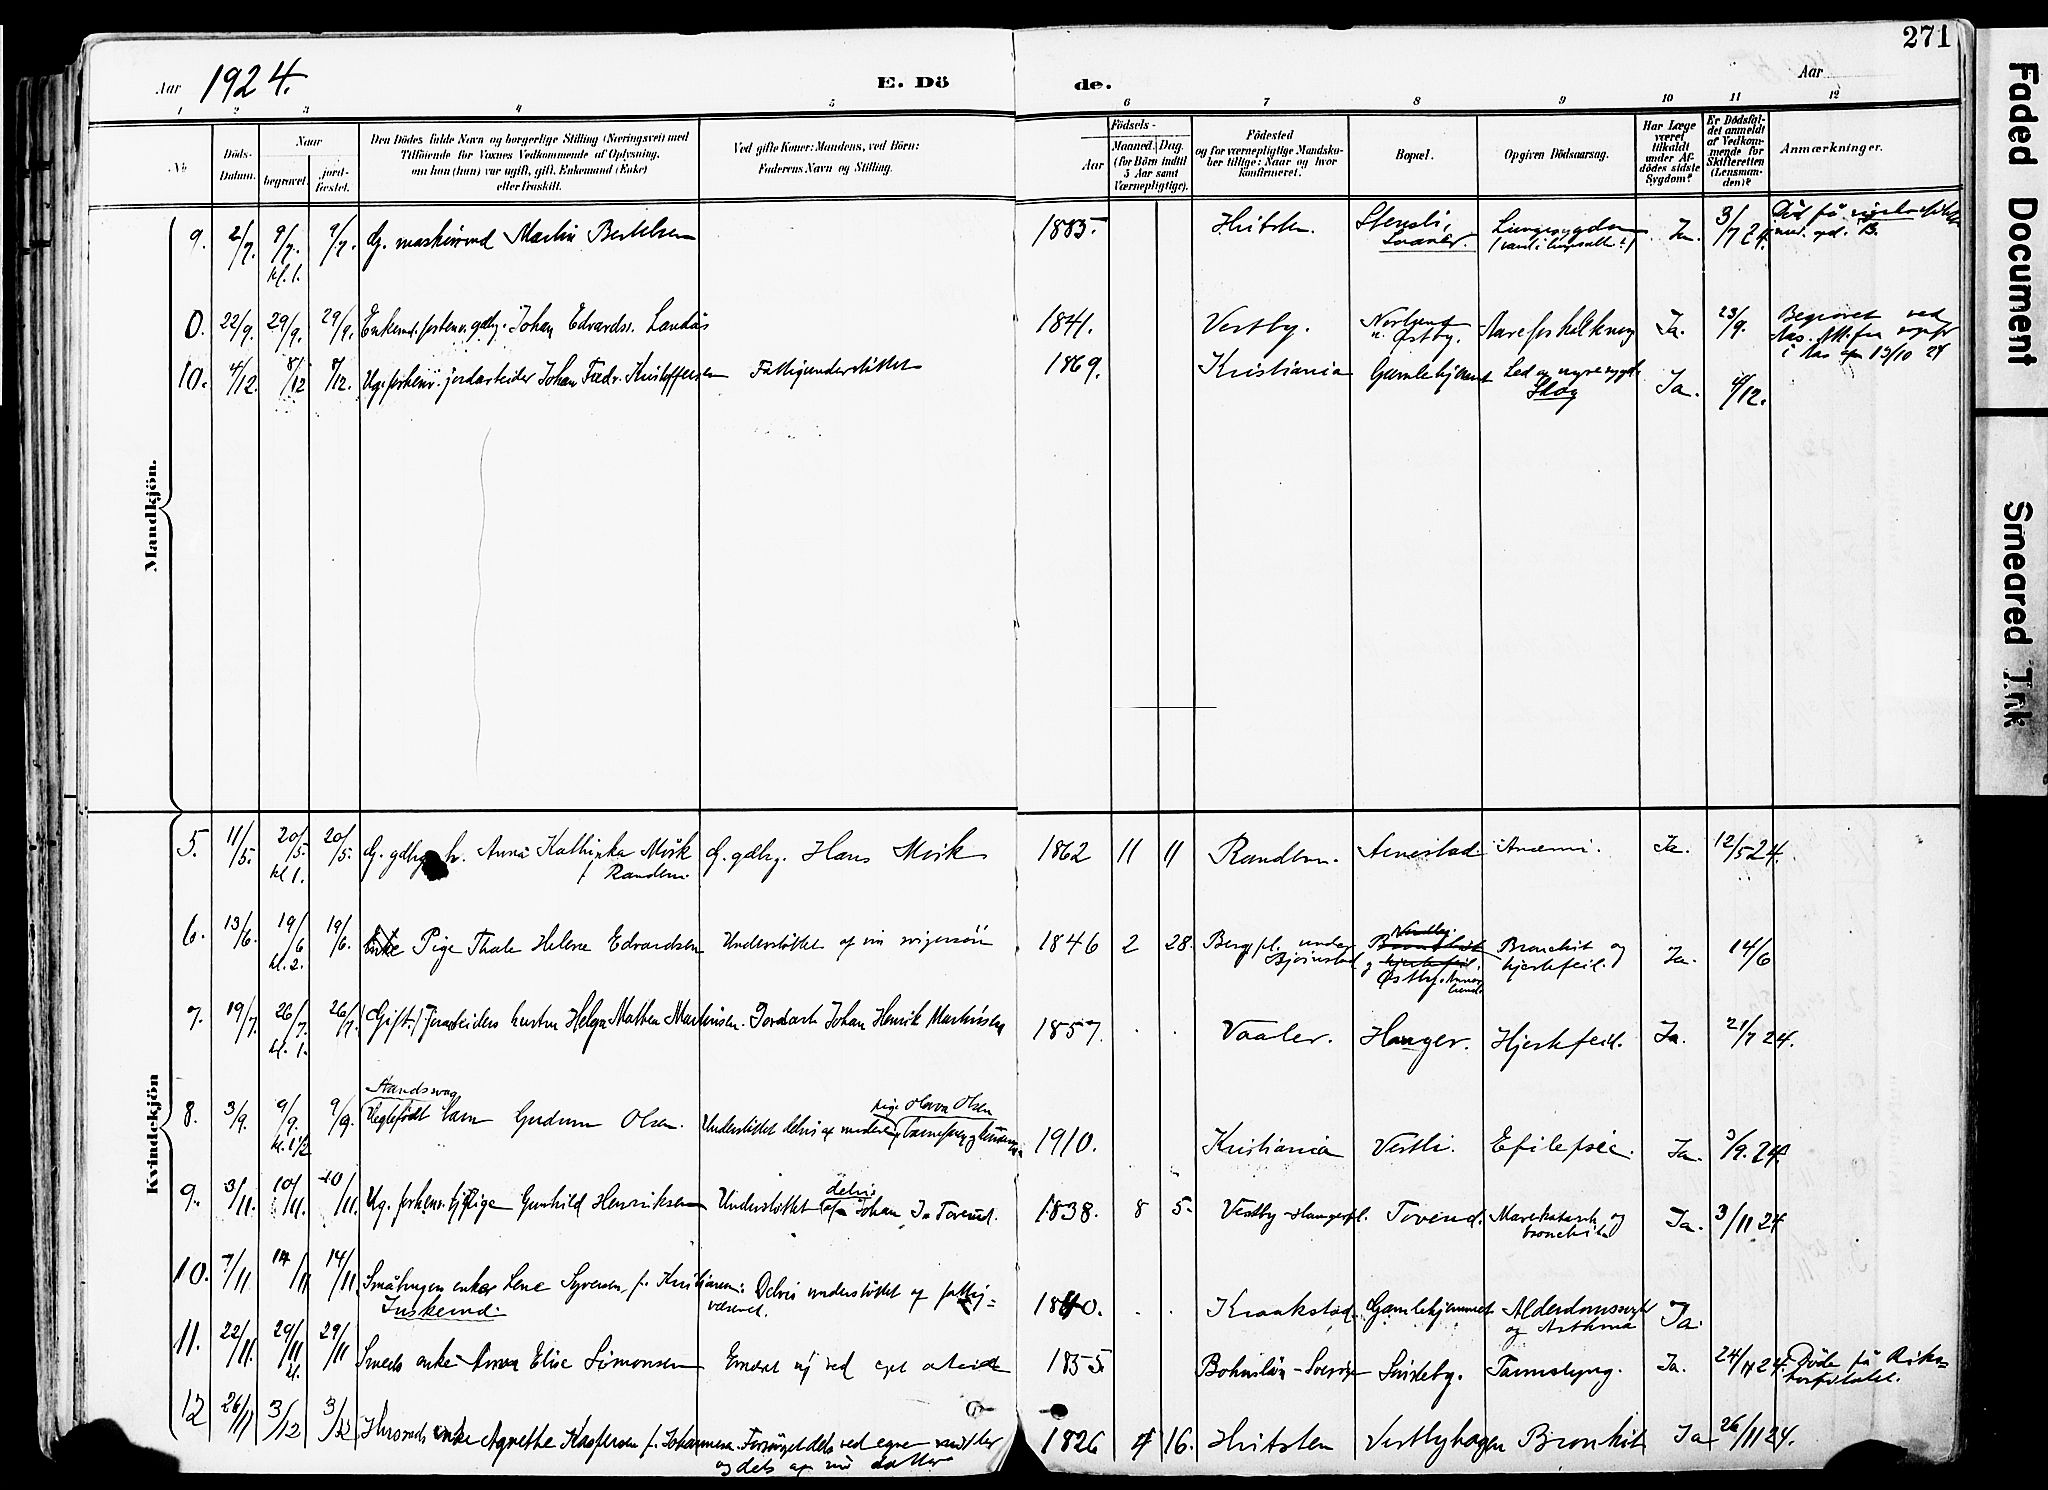 271
Aar 1924.
E. Döde.
Aar
1 2 3 4 5 6 7 8 9 10 11 12
No.
Döds-Datum.
Naar
begravet.
jord-fæstet.
Den Dödes fulde Navn og borgerlige Stilling (Næringsvei) med
Tilföiende for Voxnes Vedkommende af Oplysning,
om han (hun) var ugift, gift, Enkemand (Enke)
eller fraskilt.
Ved gifte Koner: Mandens, ved Börn:
Faderens Navn og Stilling.
Födsels-
Aar
Maaned. Dag.
(for Börn indtil
5 Aar samt
Værnepligtige).
Födested
og for værnepligtige Mandska-
ber tillige: Naar og hvor
konfirmeret.
Bopæl.
Opgiven Dödsaarsag.
Har Læge
været
tilkaldt
under Af-
dödes sidste
Sygdom?
Er Dödsfal-
det anmeldt
af Vedkom-
mende for
Skifteretten
(Lensman-
den)?
Anmærkninger.
Mandkjön.
9. 2/7. 9/7. kl. 1. 9/7. G. maskinmd Martin Bertelsen 1885. Hvitsten. Stensli, Lungesygdom Ja. 3/7 24.
0. 22/9. 29/9. 29/9. Enkemd. forhenv. gdbr. Johan Edvards. Landås 1841. Vestby. Østby. Aareforkalkning Ja. 23/9. Begravet ved Aas i Aas 13/10 24
10. 4/12. 8/12 8/12. Ug. forhenv. jordarbeider Johan Fredr. Kristoffersen Fattigunderstöttet 1869. Kristiania Gamlehjemmet Led og nyresygd. Skog Ja. 4/12.
Kvindekjön
5. 11/5. 20/5. kl 1. 20/5. G. gdbr. h. Anna Kathinka Mörk f. Randem G. gdbr. Hans Mörk 1862 11 11 Randem. Arnestad Anæmi. Ja. 12/5 24.
6. 13/6. 19/6 kl. 2. 19/6. Enke Pige Thale Helene Edvardsen Understöttet af sin svigersön 1846 2 28. Berg pl. under Bjørnstad Vestby. Østby. Bronchit og hjertefeil. Ja. 14/6
7. 19/7. 26/7. kl. 1. 26/7. (Gift.) Jdarbeiders hustru Helga Mathea Martinsen. Jordarb. Johan Henrik Martinsen 1857. Vaaler. Hauger. Hjertefeil. Ja. 21/7 24.
8. 3/9. 9/9. kl. 1 1/2 9/9. Aandssvag Uegtefödt barn Gudrun Olsen. Understöttet delvis af moderen pige Olava Olsen 1910. Kristiania Vestli. Epilepsie. Ja. 3/9. 24.
9. 3/11. 10/11. 10/11. Ug. forhenv. tj.pige Gunhild Henriksen Understöttet delvis af Johan Tovend. 1838. 8 5. Vestby Haugerpl. Tovend. Mavekatarrh og bronchit Ja. 3/11 24
10. 7/11 14/11 14/11. Småbruger enke Lene Syversen, f. Kristiansen: Delvis understöttet af fattigvæsenet. 1840. Kraakstad. Gamlehjemmet Alderdomssvaghed og Asthma Ja.
11. 22/11. 29/11 kl. 29/11 Smeds enke Anna Elise Simonsen Ernæret sig ved eget arbeide 1855. Bohuslän - Sverige Snideby. Tarmslyng. Ja. 24/11 24. Döde på Rikshospitalet.
12 26/11 3/12 3/12 Husmds enke Agnethe Kaspersen f. Johannesen. Forsörget dels ved egne midler og dels af sin datter 1826 4 16. Hvitsten Vestbyhagen Bronkit Ja 26/11 24.
Faded Document
Smeared Ink